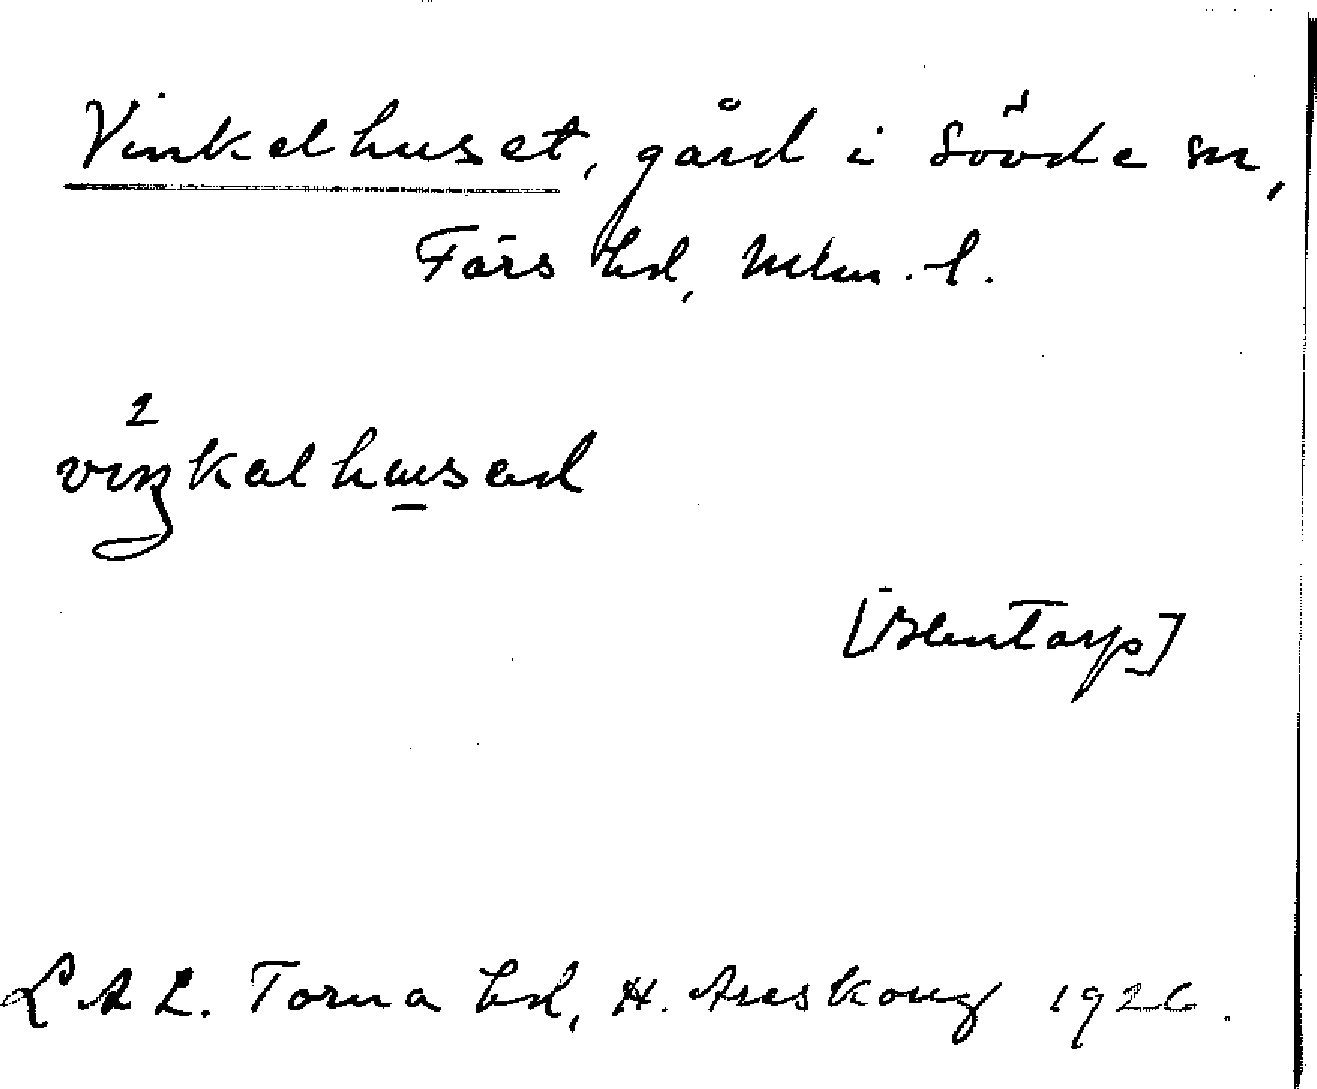 Vinkelhuset, gård i Sövde sn,
Färs hd, Mlm. l.
2
viŋkalhusad
[Blentarp]
L A L. Torna hd, H. Areskoug 1926.